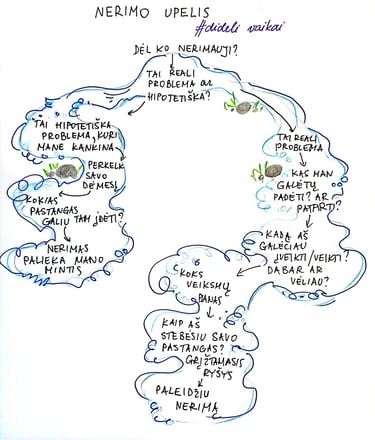 NERIMO UPELIS
#dideli vaikai
DĖL KO NERIMAUJI?
TAI REALI
PROBLEMA ar
HIPOTETIŠKA?
TAI HIPOTETIŠKA
PROBLEMA, KURI
MANE KANKINA
PERKELK
SAVO
DĖMESĮ
KOKIAS
PASTANGAS
GALIU TAM ĮDĖTI?
NERIMAS
PALIEKA MANO
MINTIS
TAI REALI
PROBLEMA
KAS MAN
GALĖTŲ
PADĖTI? AR
PATARTI?
KADA AŠ
GALĖČIAU
ĮVEIKTI/VEIKTI?
DABAR AR
VĖLIAU?
KOKS
VEIKSMŲ
PLANAS
KAIP AŠ
STEBĖSIU SAVO
PASTANGAS?
GRĮŽTAMASIS
RYŠYS
PALEIDŽIU
NERIMĄ